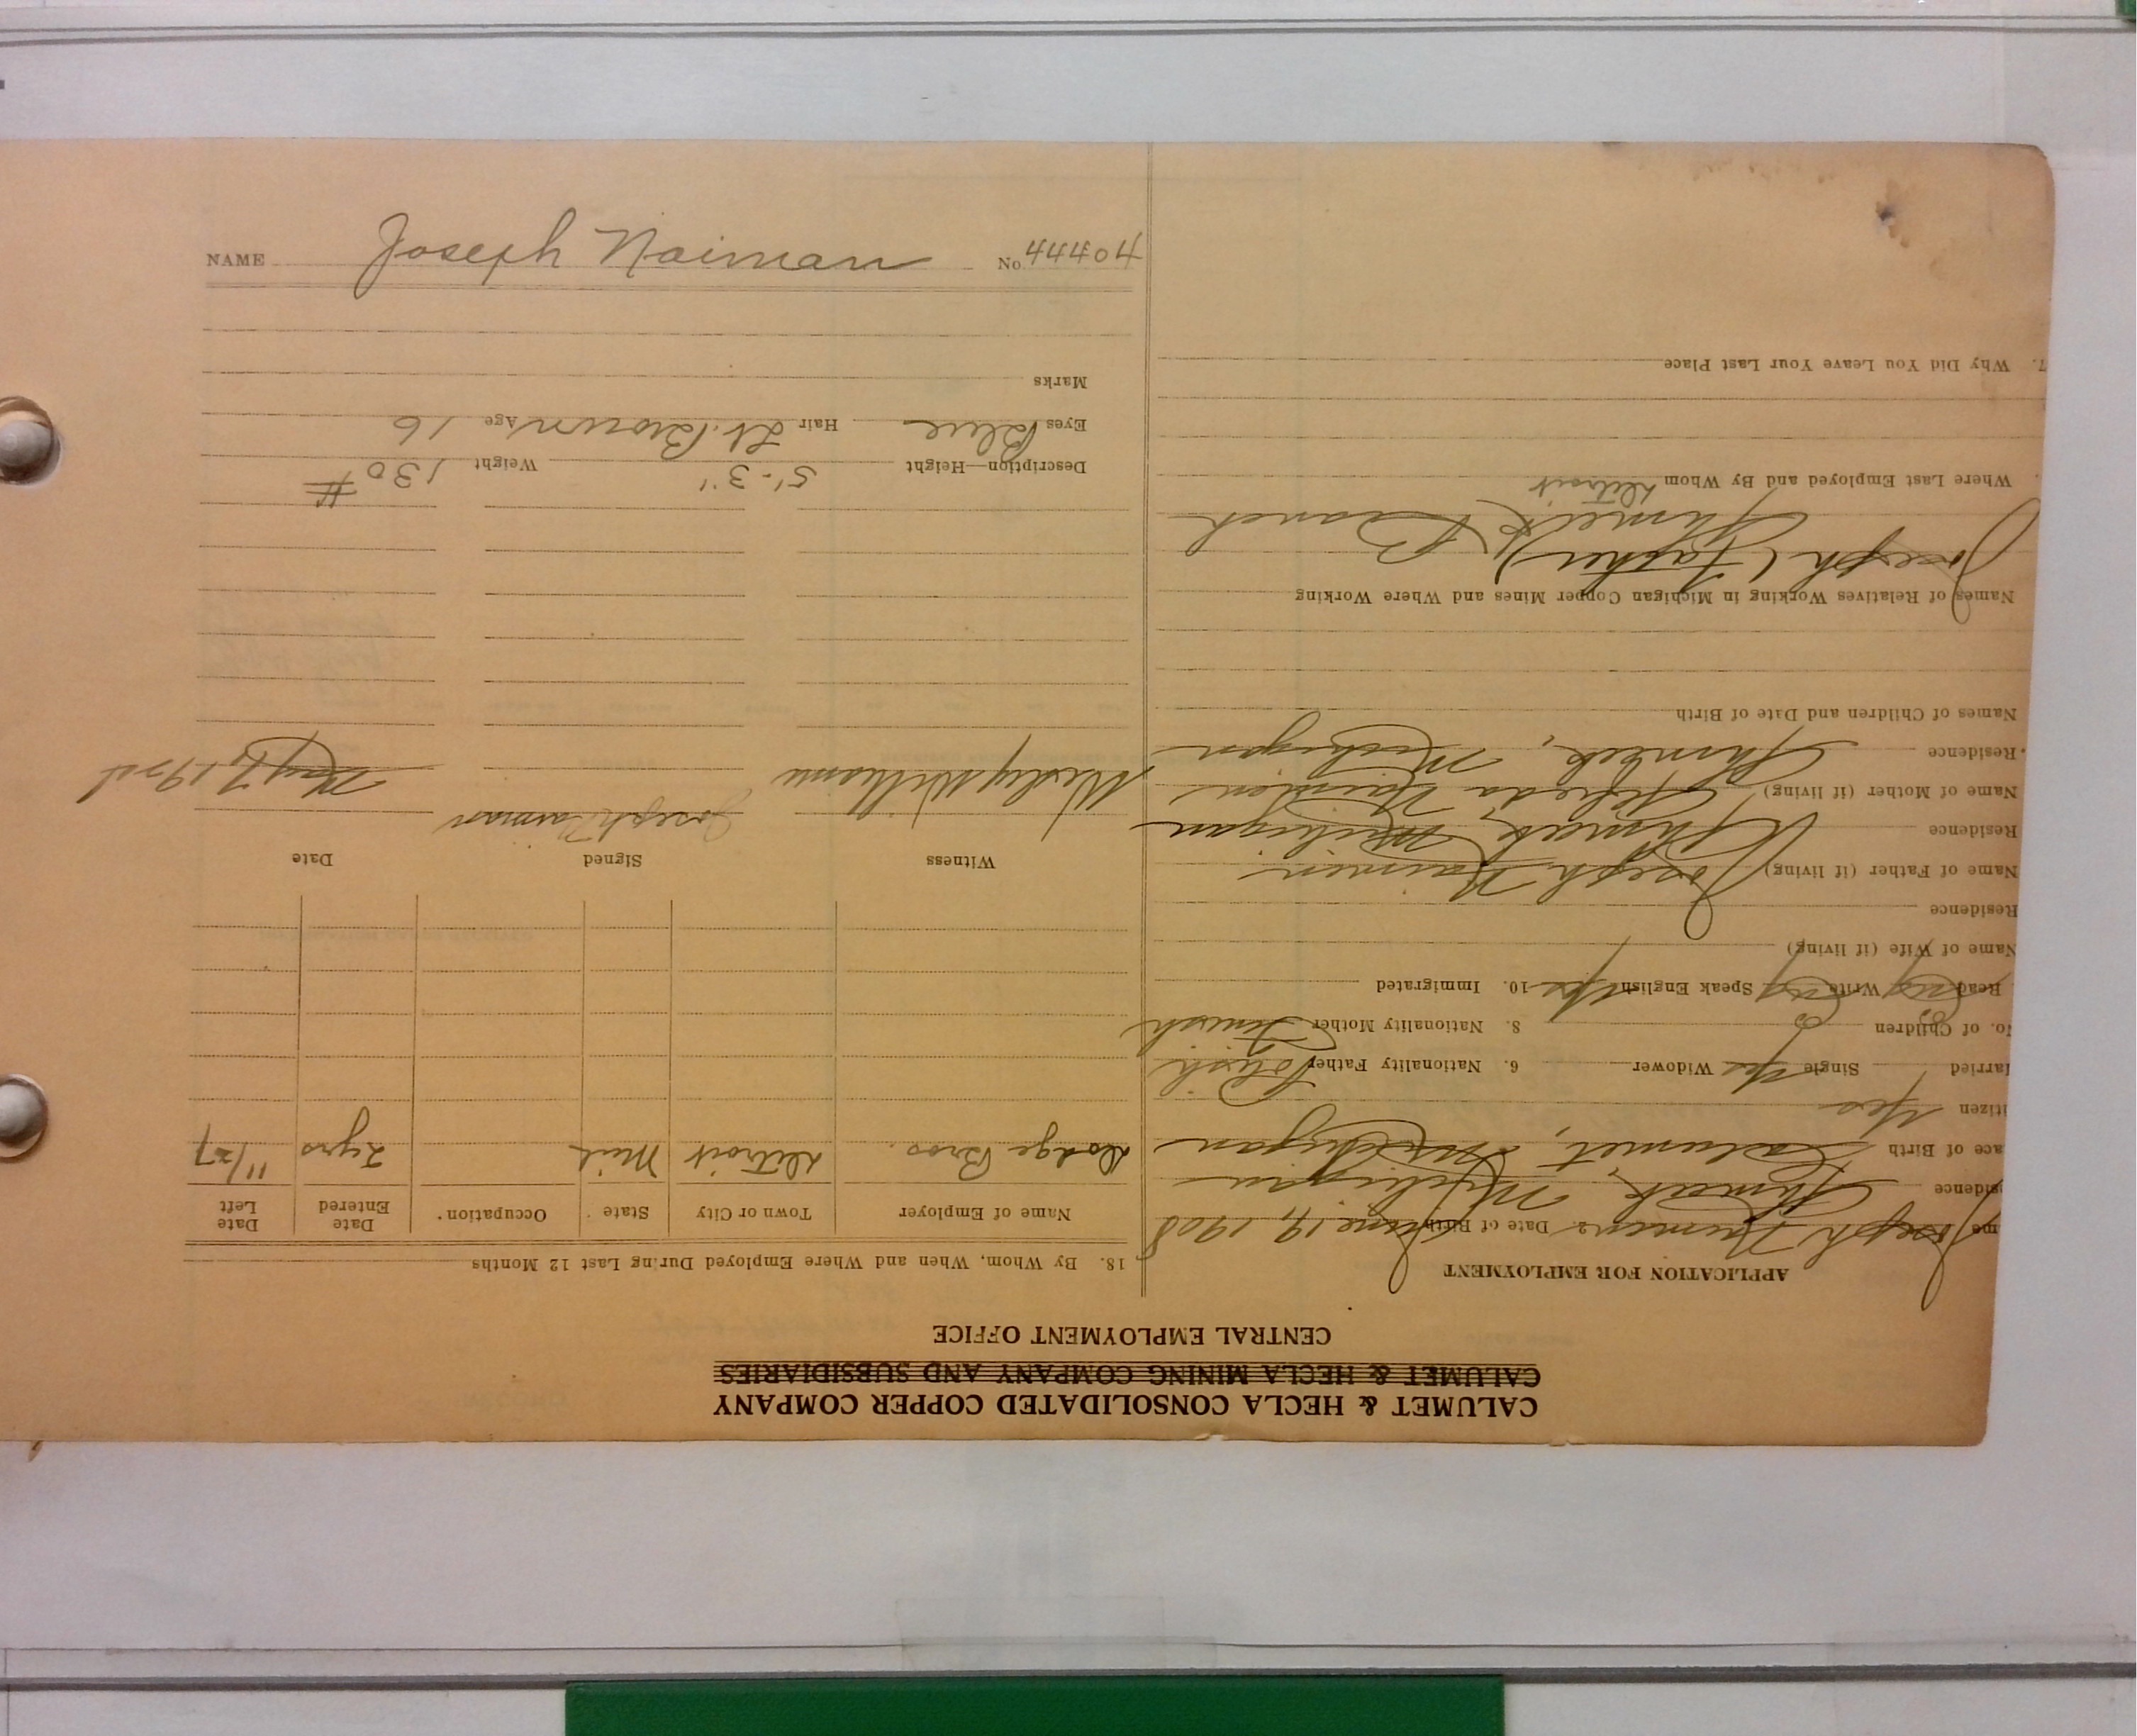 CALUMET & HECLA CONSOLIDATED COPPER COMPANY
CALUMET & HECLA MINING COMPANY AND SUBSIDIARIES
CENTRAL EMPLOYMENT OFFICE
APPLICATION FOR EMPLOYMENT
me Joseph 2. Date of Birth June 19, 1908
sidence Ahmeek, Michigan
ace of Birth Calumet, Michigan
itizen Yes
arried Single Yes Widower 6. Nationality Father Polish
o. of Children 8. Nationality Mother Finnish
Read Eng Write Eng Speak English Yes 10. Immigrated
Name of Wife (if living)
Residence
Name of Father (if living) Joseph
Residence Ahmeek, Michigan
Name of Mother (if living)
Residence Ahmeek, Michigan
Names of Children and Date of Birth
Names of Relatives Working in Michigan Copper Mines and Where Working
Joseph (Father) Ahmeek Branch
Where Last Employed and By Whom Detroit
7. Why Did You Leave Your Last Place
18. By Whom, When and Where Employed During Last 12 Months
Name of Employer Town or City State Occupation Date Entered Date Left
Dodge Bros. Detroit Mich 2 yrs 11/27
Witness Signed Date
Joseph Naiman
Wesley Williams May 7, 192
Description—Height 5'-3" Weight 130#
Eyes Blue Hair Lt. Brown Age 16
Marks
NAME Joseph Naiman No. 44404